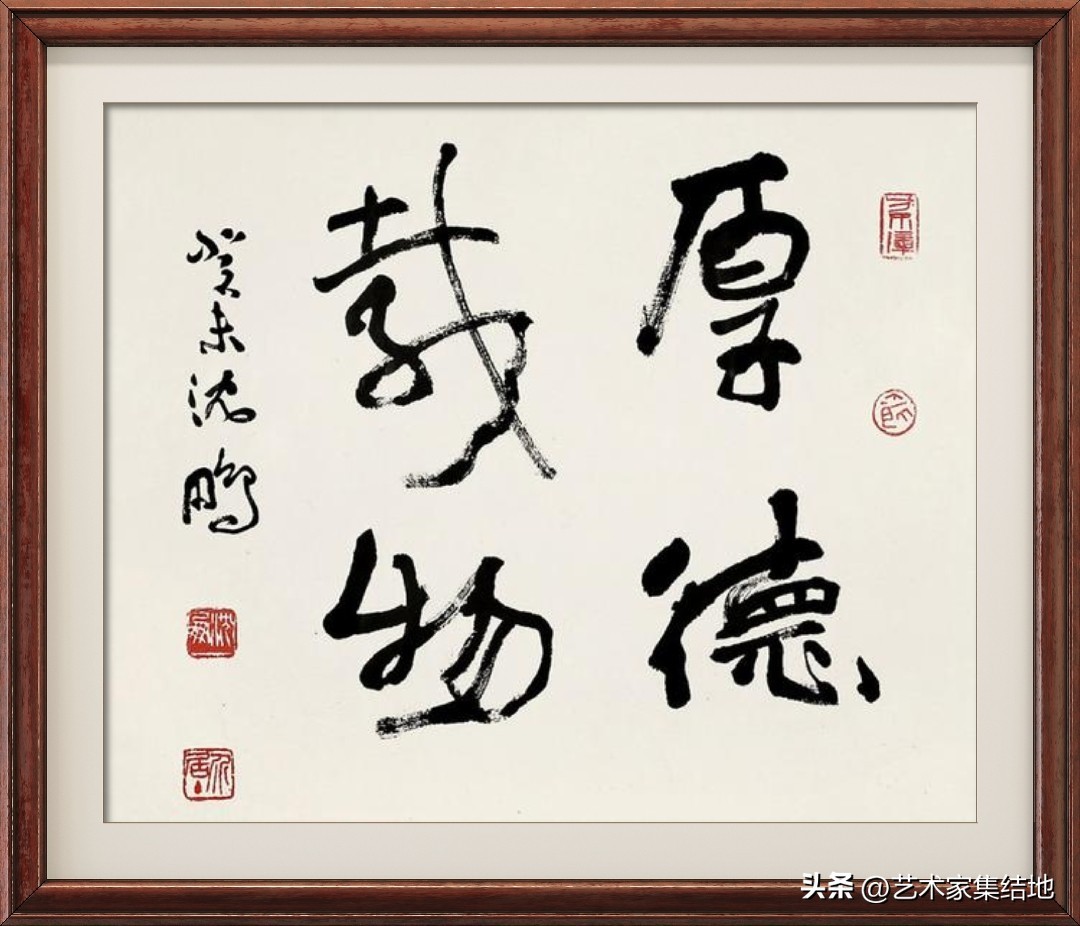 厚德
载物
癸未沈鹏
头条 @艺术家集结地